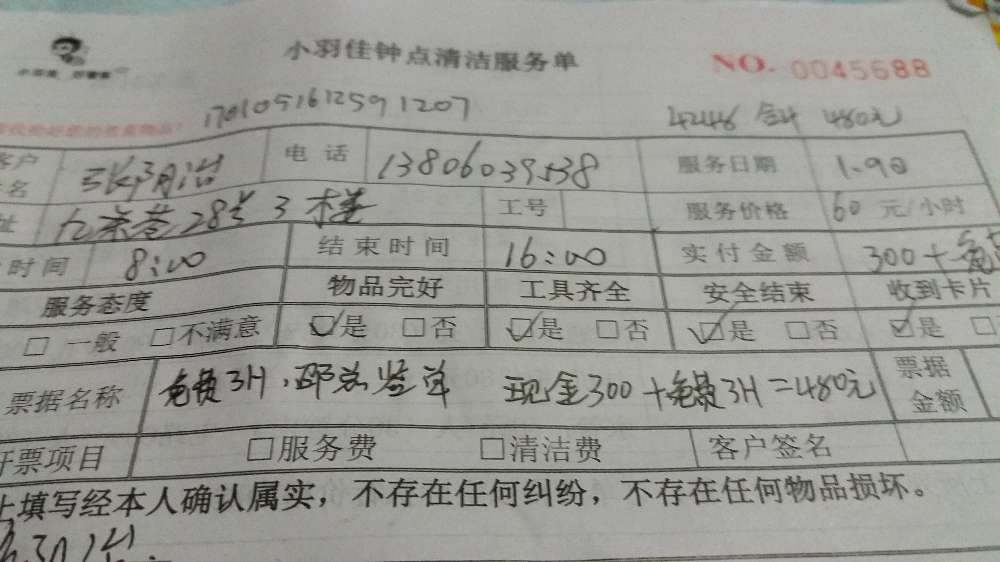 小羽佳钟点清洁服务单 NO. 0045688
170105161259 1207 42446 合计 480元
客户 电话 13806039538 服务日期 1.90
28号3楼 工号 服务价格 60 元/小时
时间 8:00 结束时间 16:00 实付金额 300+免
服务态度 物品完好 工具齐全 安全结束 收到卡片
□ 一般 □不满意 ☑是 □否 ☑是 □否 ☑是 □否 ☑是 □
票据名称 免费3H、 签单 现金300+免费3H=480元 票据金额
开票项目 □服务费 □清洁费 客户签名
上填写经本人确认属实，不存在任何纠纷，不存在任何物品损坏。